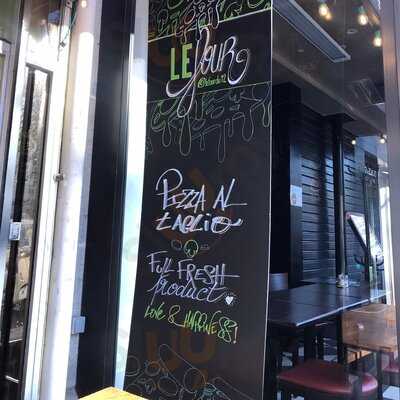 LE four
PIZZA AL
TAGLIO
FULL FRESH
product
LOVE & HAPPINESS!